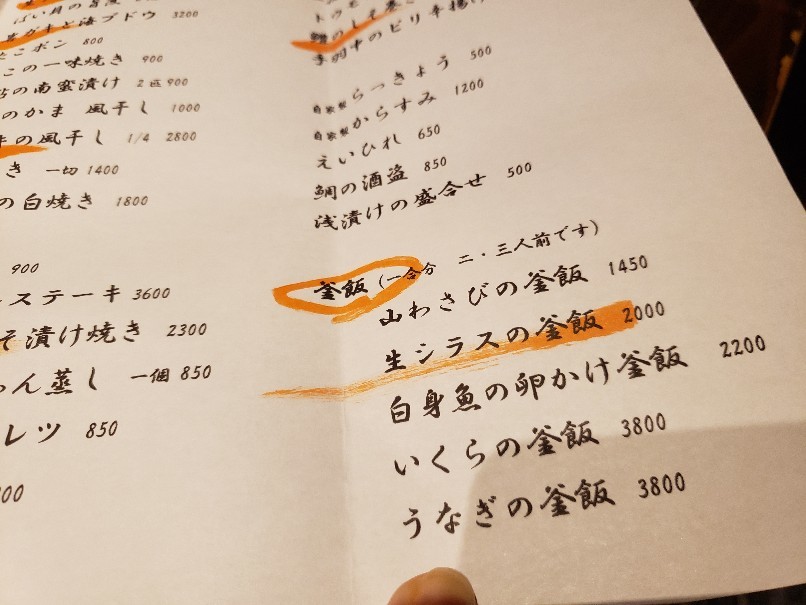 3200
ポン 800
この一味焼き 900
の南蛮漬け 2匹 900
のかま 風干し 1000
の風干し 1/4 2800
き 一切 1400
の白焼き 1800
900
ステーキ 3600
そ漬け焼き 2300
ん蒸し 一個 850
レツ 850
00
手羽中のピリ辛揚げ
自家製らっきょう 500
自家製からすみ 1200
えいひれ 650
鯛の酒盗 850
浅漬けの盛合せ 500
釜飯 (一合分 二・三人前です)
山わさびの釜飯 1450
生シラスの釜飯 2000
白身魚の卵かけ釜飯 2200
いくらの釜飯 3800
うなぎの釜飯 3800